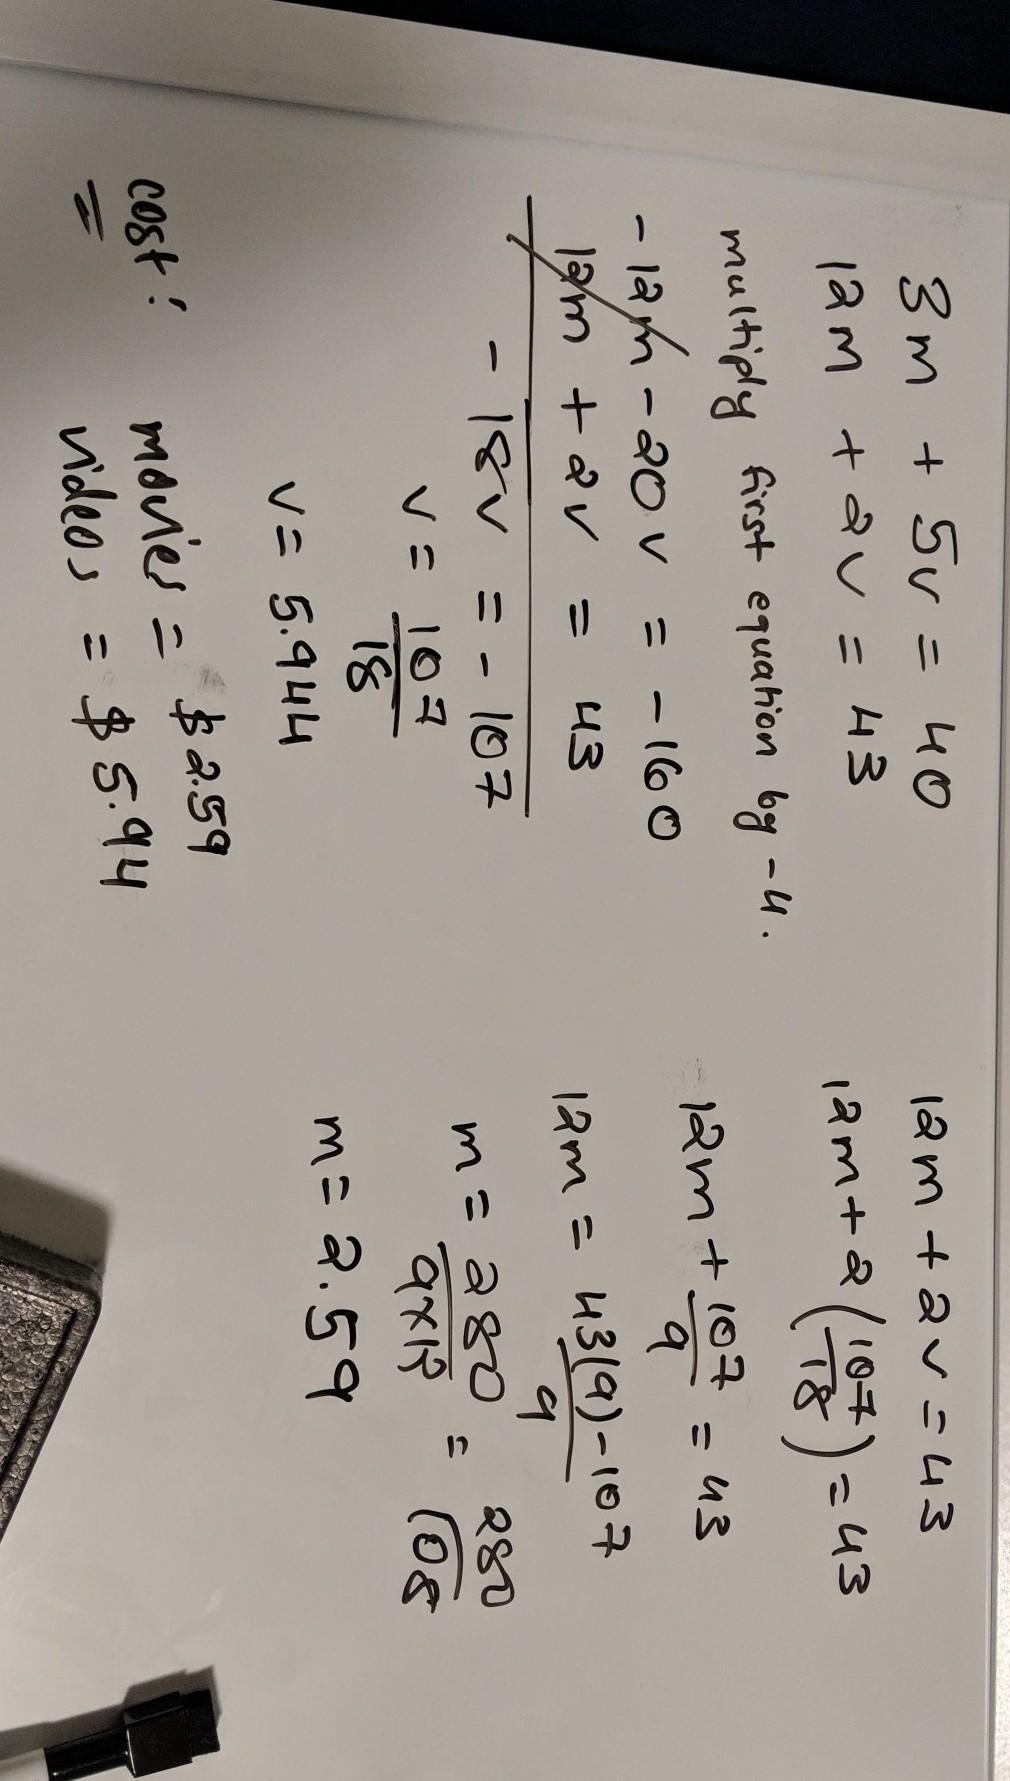 3m + 5v = 40
12m + 2v = 43
multiply first equation by -4.
-12m - 20v = -160
12m + 2v = 43
- 18v = - 107
v = 107
18
v = 5.944
cost :
=
movies = $ 2.59
videos = $ 5.94
12m + 2v = 43
12m + 2 (107/18) = 43
12m + 107/9 = 43
12m = 43(9) - 107
9
m = 280 = 280
9x12 108
m = 2.59